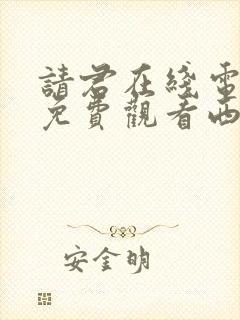 請君在綫電
免費觀看西
安金明